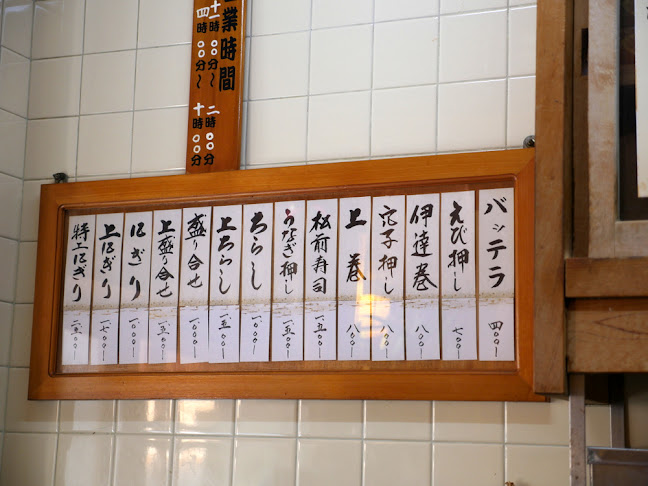 営業時間
十一時〇〇分〜二時〇〇分
四時〇〇分〜十時〇〇分
バッテラ 四〇〇ー
えび押し 七〇〇ー
伊達巻 八〇〇ー
穴子押し 八〇〇ー
上巻 八〇〇ー
松前寿司 一、五〇〇ー
うなぎ押し 一、五〇〇ー
ちらし 一、〇〇〇ー
上ちらし 一、五〇〇ー
盛り合せ 一、〇〇〇ー
上盛り合せ 一、五〇〇ー
にぎり 一、〇〇〇ー
上にぎり 一、七〇〇ー
特上にぎり